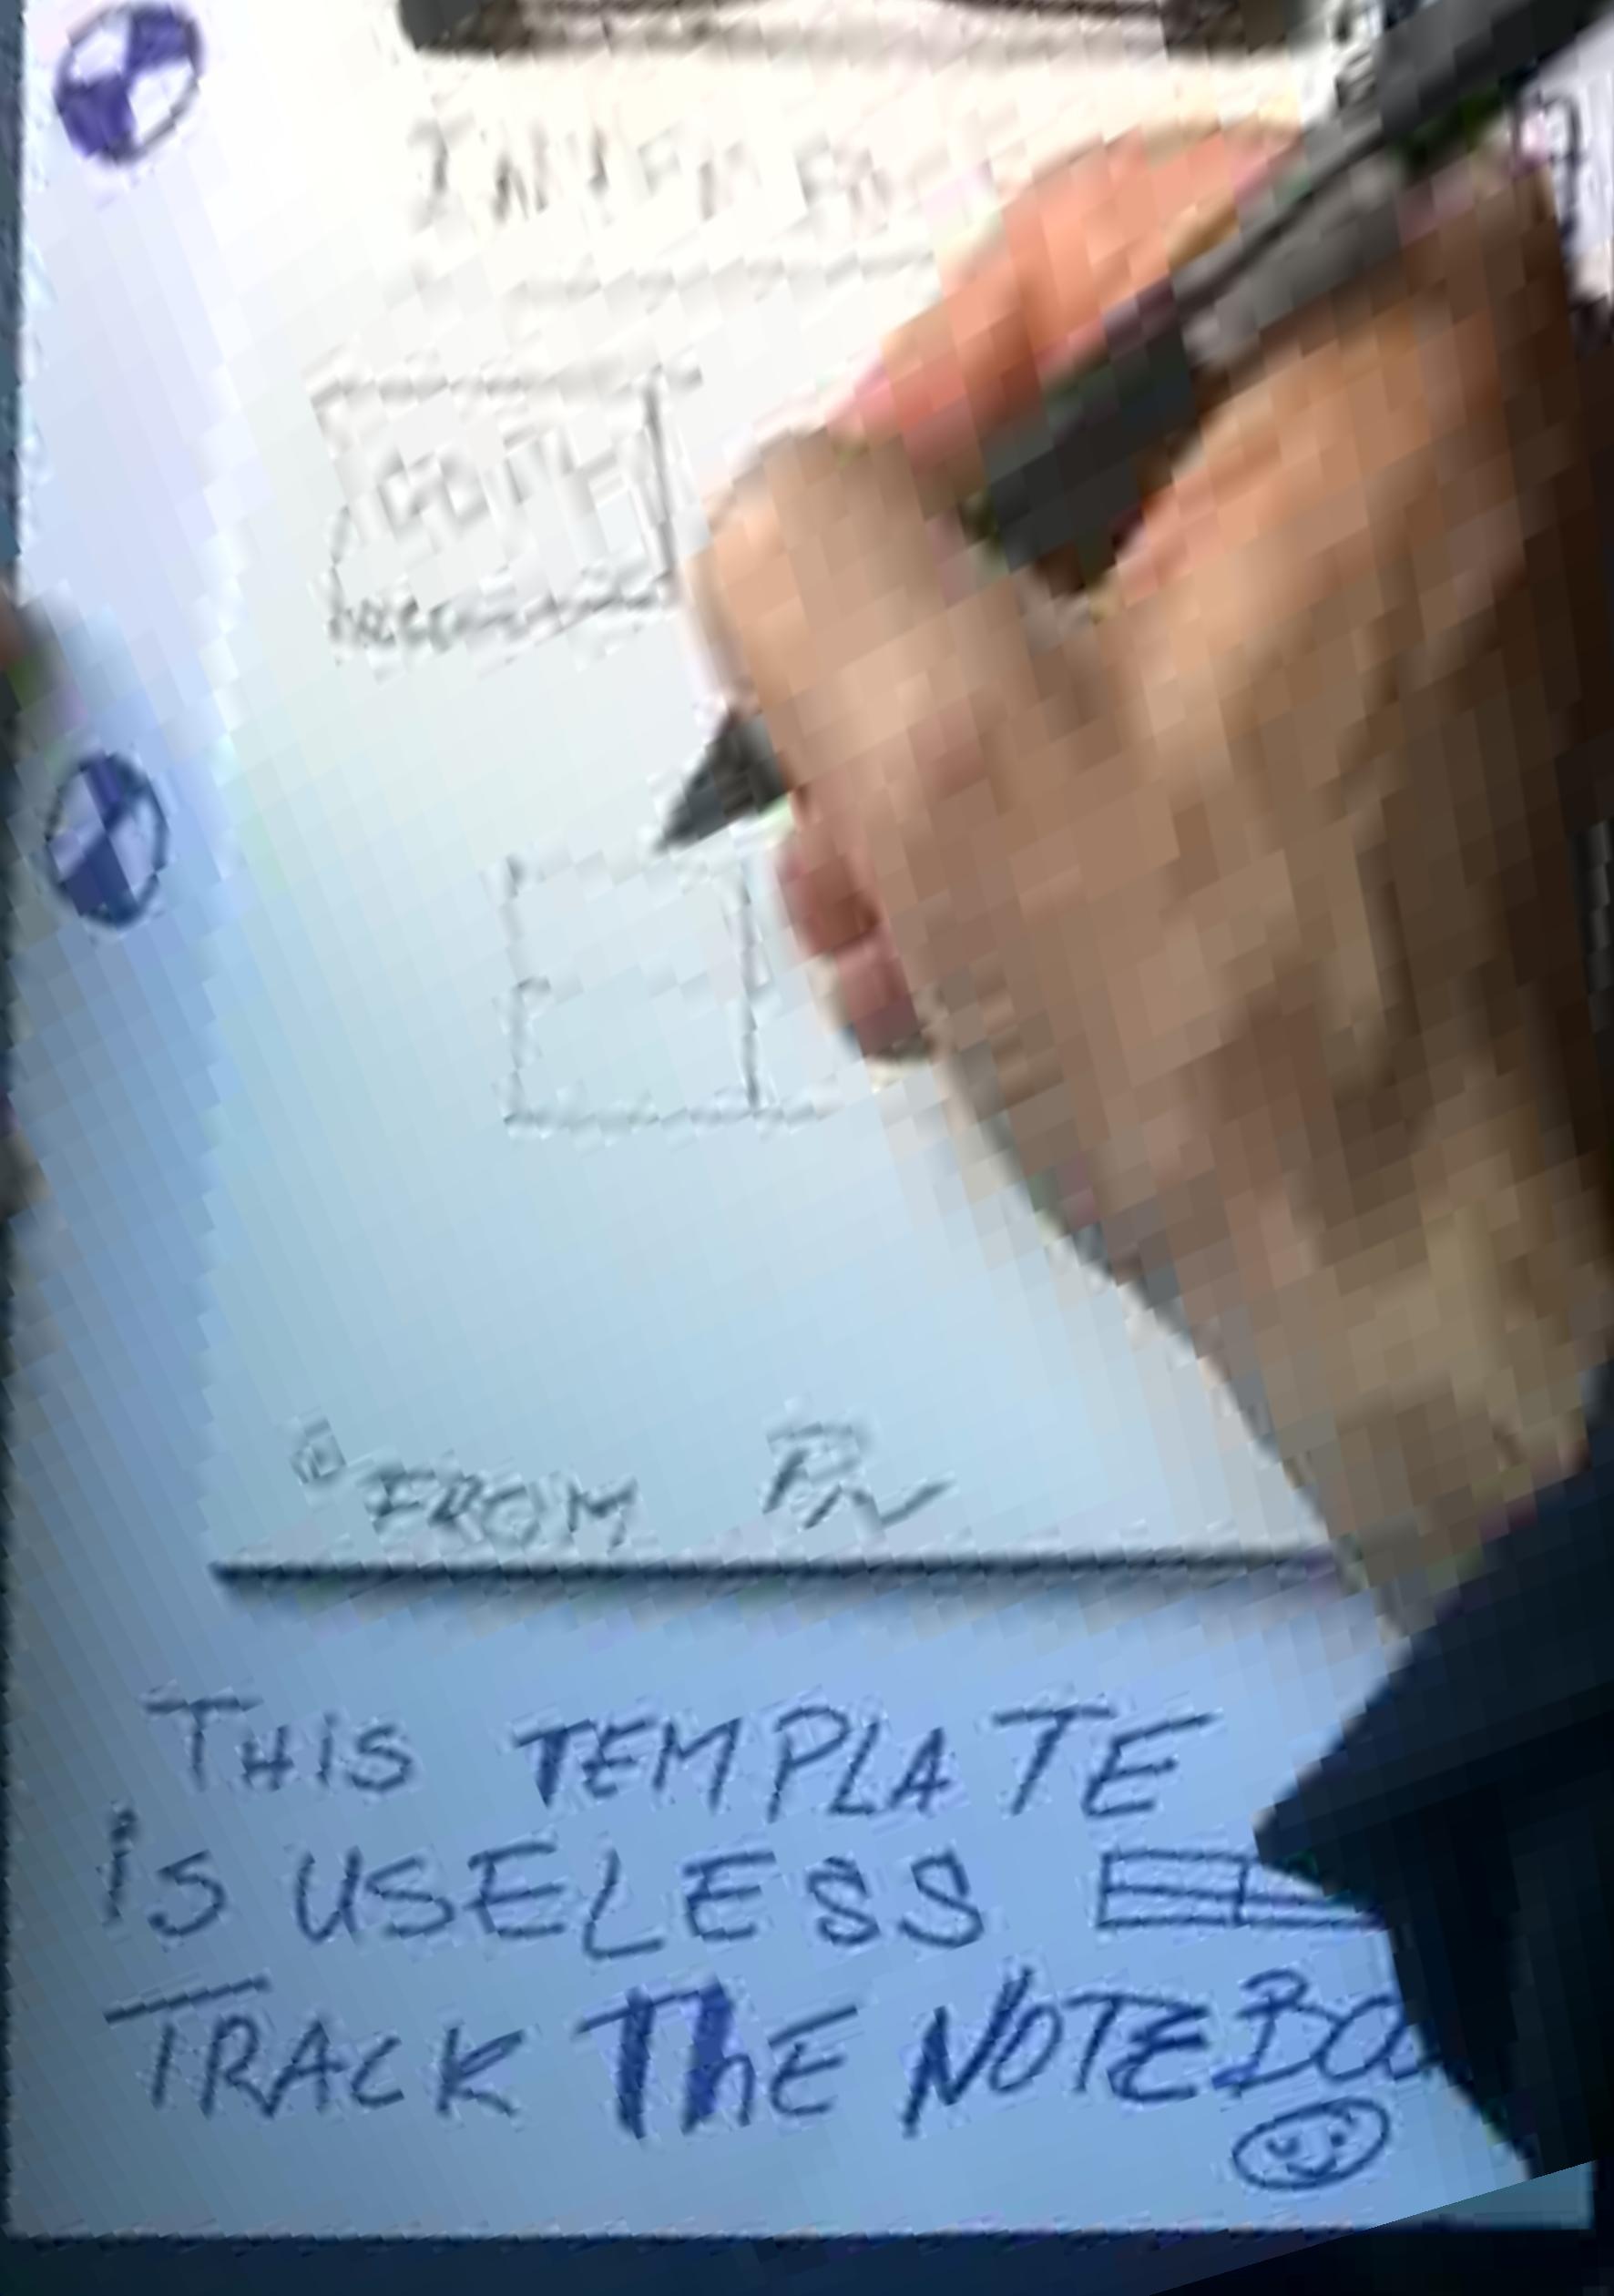 FROM
THiS TEMPLATE
iS USELESS
TRACK ThE NOTEBO